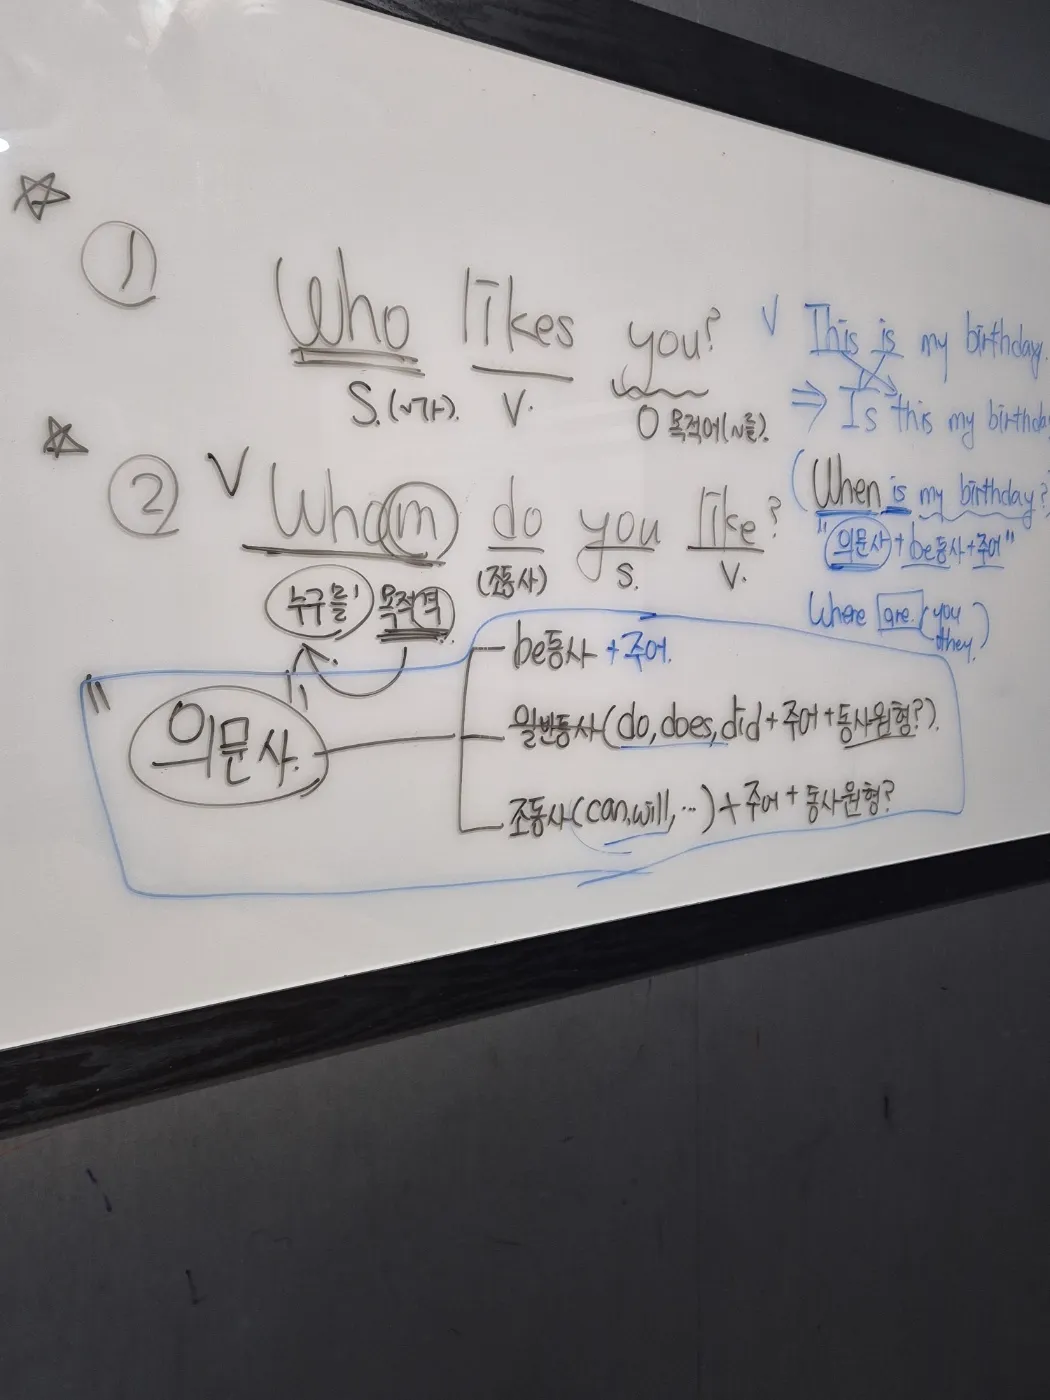 ☆
① Who likes you?
S.(~가). V. O 목적어(~를).
☆
② V Whom do you like?
(조동사) S. V.
누구를 목적격
be동사 + 주어.
"의문사. 일반동사(do, does, did + 주어 + 동사원형?).
조동사(can, will, ...) + 주어 + 동사원형?
V This is my birthday.
⇒ Is this my birthday
(When is my birthday?
"의문사 + be동사 + 주어"
Where are you
they.)